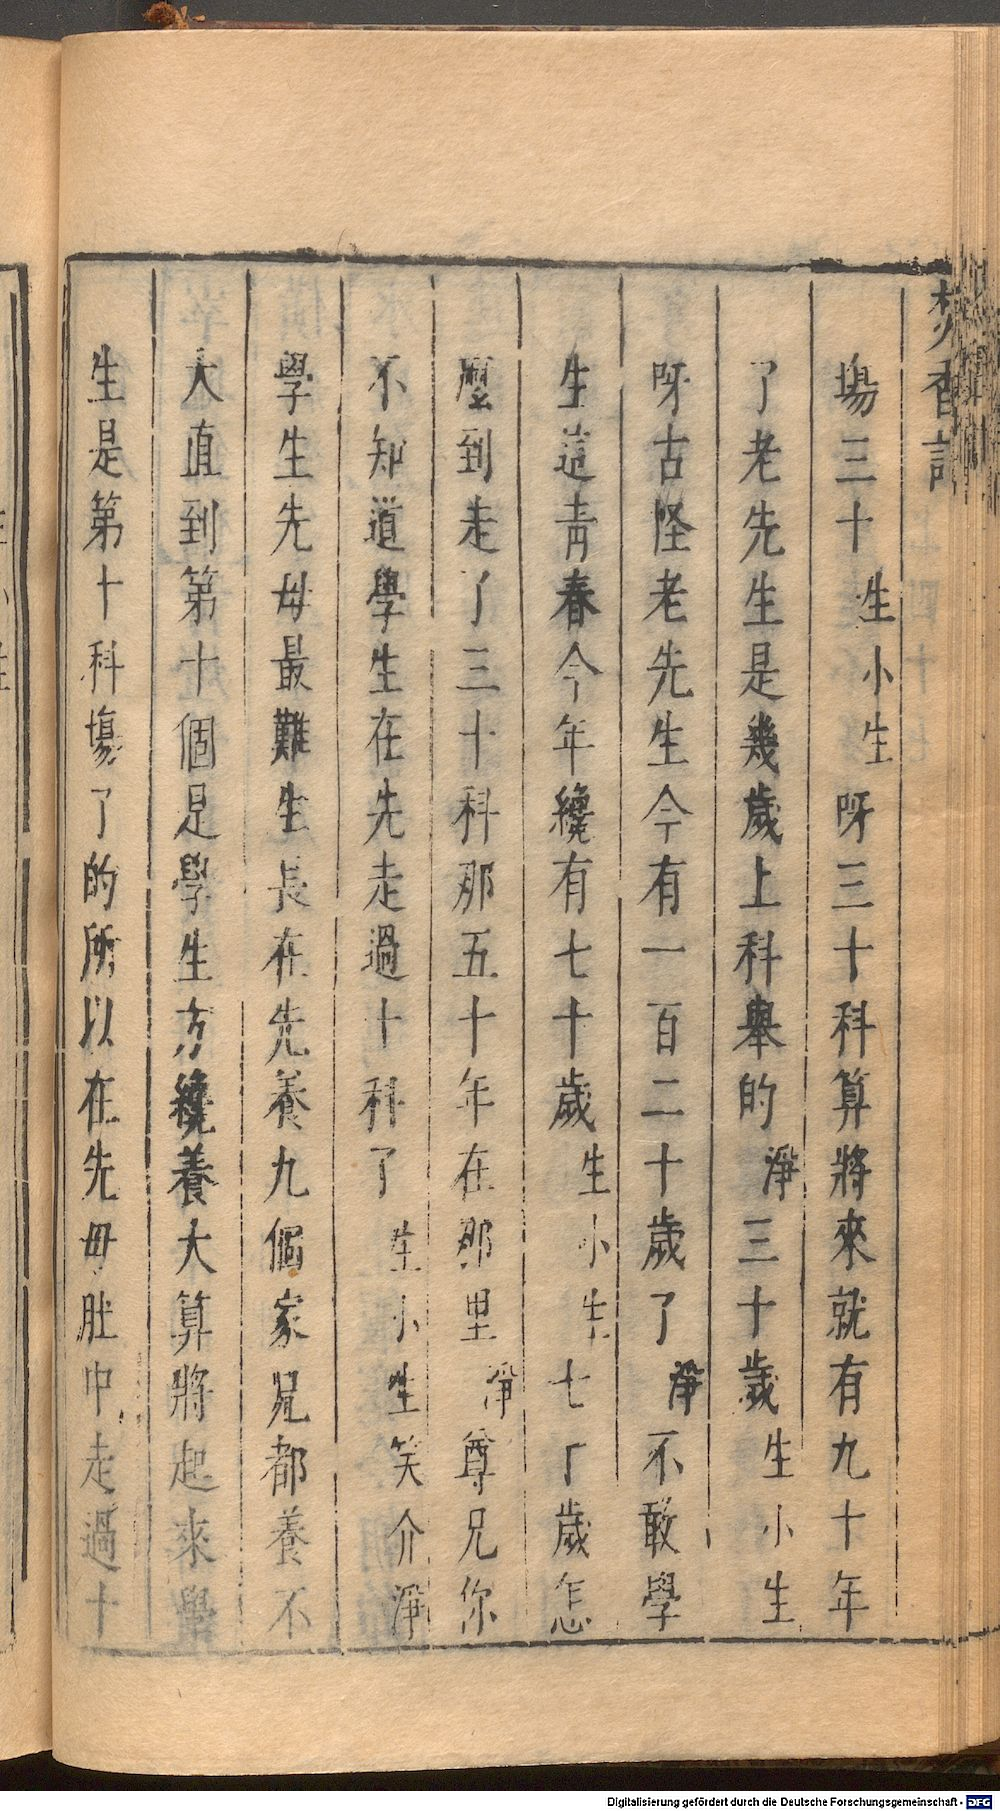 焚香記
場三十生小生呀三十科算將來就有九十年
了老先生是幾歲上科舉的淨三十歲生小生
呀古怪老先生今有一百二十歲了淨不敢學
生這青春今年纔有七十歲生小生七十歲怎
麼到走了三十科那五十年在那里淨尊兄你
不知道學生在先走過十科了生小生笑介淨
學生先母最難生長在先養九個家兄都養不
大直到第十個是學生方纔養大算將起來學
生是第十科塲了的所以在先母肚中走過十
Digitalisierung gefördert durch die Deutsche Forschungsgemeinschaft - DFG